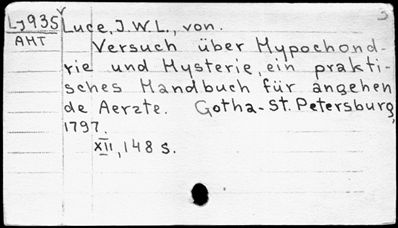 Lj935 Luce, J.W.L., von.
AHT Versuch über Hypochond-
rie und Hysterie, ein prakti-
sches Handbuch für angehen
de Aerzte. Gotha-St. Petersburg,
1797.
XII, 148 s.